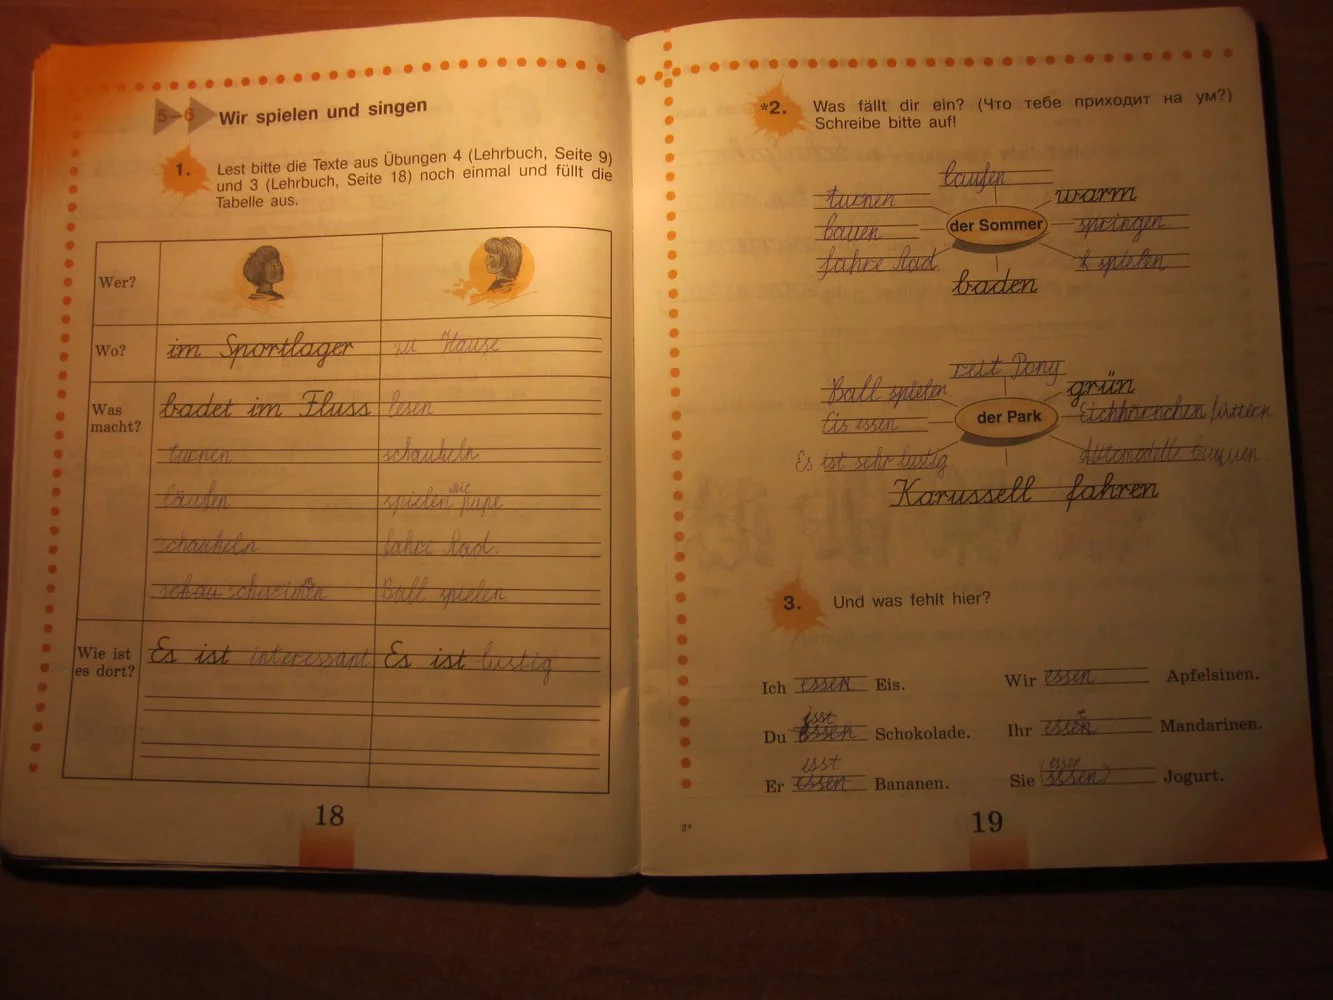 5–6 Wir spielen und singen
1. Lest bitte die Texte aus Übungen 4 (Lehrbuch, Seite 9)
und 3 (Lehrbuch, Seite 18) noch einmal und füllt die
Tabelle aus.
Wer?
Wo? im Sportlager zu Hause
Was macht? badet im Fluss lesen
turnen schaukeln
läufen spielen mit pupe
schaukeln fahre Rad.
schau schwimmen Ball spielen
Wie ist es dort? Es ist interessant Es ist lustig
18
*2. Was fällt dir ein? (Что тебе приходит на ум?)
Schreibe bitte auf!
laufen
turnen warm
bauen der Sommer springen
fahre Rad. spielen
baden
reit Pony
Ball spielen grün
Eis essen der Park Eichhörnchen füttern
Es ist sehr lustig Automodelle
Karussell fahren
3. Und was fehlt hier?
Ich essen Eis. Wir essen Apfelsinen.
isst t
Du essen Schokolade. Ihr essen Mandarinen.
isst (essen
Er essen Bananen. Sie essen) Jogurt.
2* 19